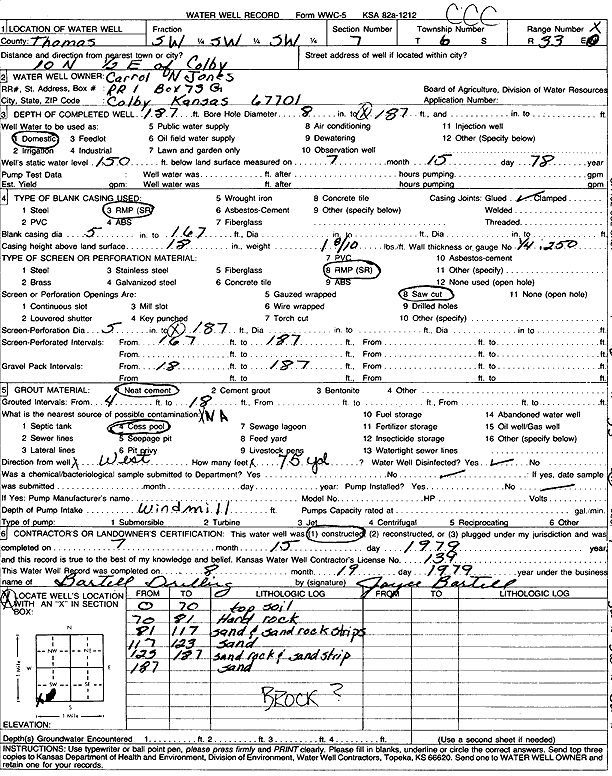 WATER WELL RECORD Form WWC-5 KSA 82a-1212
CCC
1 LOCATION OF WATER WELL Fraction Section Number Township Number Range Number
County: Thomas SW ¼ SW ¼ SW ¼ 7 T 6 S R 33 E
Distance and direction from nearest town or city? Street address of well if located within city?
10 N ½ E of Colby
2 WATER WELL OWNER: Carrol N Jones
RR#, St. Address, Box # RR 1 Box 73 G Board of Agriculture, Division of Water Resources
City, State, ZIP Code Colby Kansas 67701 Application Number:
3 DEPTH OF COMPLETED WELL 187 ft. Bore Hole Diameter 8 in. to X 187 ft. in. to ft.
Well Water to be used as: 5 Public water supply 8 Air conditioning 11 Injection well
1 Domestic 3 Feedlot 6 Oil field water supply 9 Dewatering 12 Other (Specify below)
2 Irrigation 4 Industrial 7 Lawn and garden only 10 Observation well
Well's static water level 150 ft. below land surface measured on 7 month 15 day 78 year
Pump Test Data Well water was ft. after hours pumping gpm
Est. Yield gpm: Well water was ft. after hours pumping gpm
4 TYPE OF BLANK CASING USED: 5 Wrought iron 8 Concrete tile Casing Joints: Glued ✓ Clamped
1 Steel 3 RMP (SR) 6 Asbestos-Cement 9 Other (specify below) Welded
2 PVC 4 ABS 7 Fiberglass Threaded
Blank casing dia 5 in. to 167 ft., Dia in. to ft., Dia in. to ft.
Casing height above land surface 18 in., weight 1 8/10 lbs./ft. Wall thickness or gauge No ¼ .250
TYPE OF SCREEN OR PERFORATION MATERIAL: 7 PVC 10 Asbestos-cement
1 Steel 3 Stainless steel 5 Fiberglass 8 RMP (SR) 11 Other (specify)
2 Brass 4 Galvanized steel 6 Concrete tile 9 ABS 12 None used (open hole)
Screen or Perforation Openings Are: 5 Gauzed wrapped 8 Saw cut 11 None (open hole)
1 Continuous slot 3 Mill slot 6 Wire wrapped 9 Drilled holes
2 Louvered shutter 4 Key punched 7 Torch cut 10 Other (specify)
Screen-Perforation Dia 5 in. to X 187 ft., Dia in. to ft., Dia in. to ft.
Screen-Perforated Intervals: From 167 ft. to 187 ft., From ft. to ft.
From ft. to ft., From ft. to ft.
Gravel Pack Intervals: From 18 ft. to 187 ft., From ft. to ft.
From ft. to ft., From ft. to ft.
5 GROUT MATERIAL: Neat cement 2 Cement grout 3 Bentonite 4 Other
Grouted Intervals: From 4 ft. to 18 ft., From ft. to ft., From ft. to ft.
What is the nearest source of possible contamination: X NA 10 Fuel storage 14 Abandoned water well
1 Septic tank 4 Cess pool 7 Sewage lagoon 11 Fertilizer storage 15 Oil well/Gas well
2 Sewer lines 5 Seepage pit 8 Feed yard 12 Insecticide storage 16 Other (specify below)
3 Lateral lines 6 Pit privy 9 Livestock pens 13 Watertight sewer lines
Direction from well X West How many feet X 75 yd ? Water Well Disinfected? Yes ✓ No
Was a chemical/bacteriological sample submitted to Department? Yes No ✓ If yes, date sample
was submitted month day year: Pump Installed? Yes ✓ No
If Yes: Pump Manufacturer's name Model No. HP Volts
Depth of Pump Intake windmill ft. Pumps Capacity rated at gal./min.
Type of pump: 1 Submersible 2 Turbine 3 Jet 4 Centrifugal 5 Reciprocating 6 Other
6 CONTRACTOR'S OR LANDOWNER'S CERTIFICATION: This water well was (1) constructed, (2) reconstructed, or (3) plugged under my jurisdiction and was
completed on 7 month 15 day 1979 year,
and this record is true to the best of my knowledge and belief. Kansas Water Well Contractor's License No. 139
This Water Well Record was completed on 8 month 19 day 1979 year under the business
name of Bartell Drilling by (signature) Joyce Bartell
7 LOCATE WELL'S LOCATION FROM TO LITHOLOGIC LOG FROM TO LITHOLOGIC LOG
WITH AN "X" IN SECTION 0 70 top soil
BOX: 70 81 Hard rock
81 117 sand & sand rock strips
N 117 123 sand
NW NE 123 187 sand rock & sand strip
W E 187 sand
SW SE
X
S
1 Mile
1 Mile
BROCK ?
ELEVATION:
Depth(s) Groundwater Encountered 1. ft. 2. ft. 3. ft. 4. ft. (Use a second sheet if needed)
INSTRUCTIONS: Use typewriter or ball point pen, please press firmly and PRINT clearly. Please fill in blanks, underline or circle the correct answers. Send top three
copies to Kansas Department of Health and Environment, Division of Environment, Water Well Contractors, Topeka, KS 66620. Send one to WATER WELL OWNER and
retain one for your records.